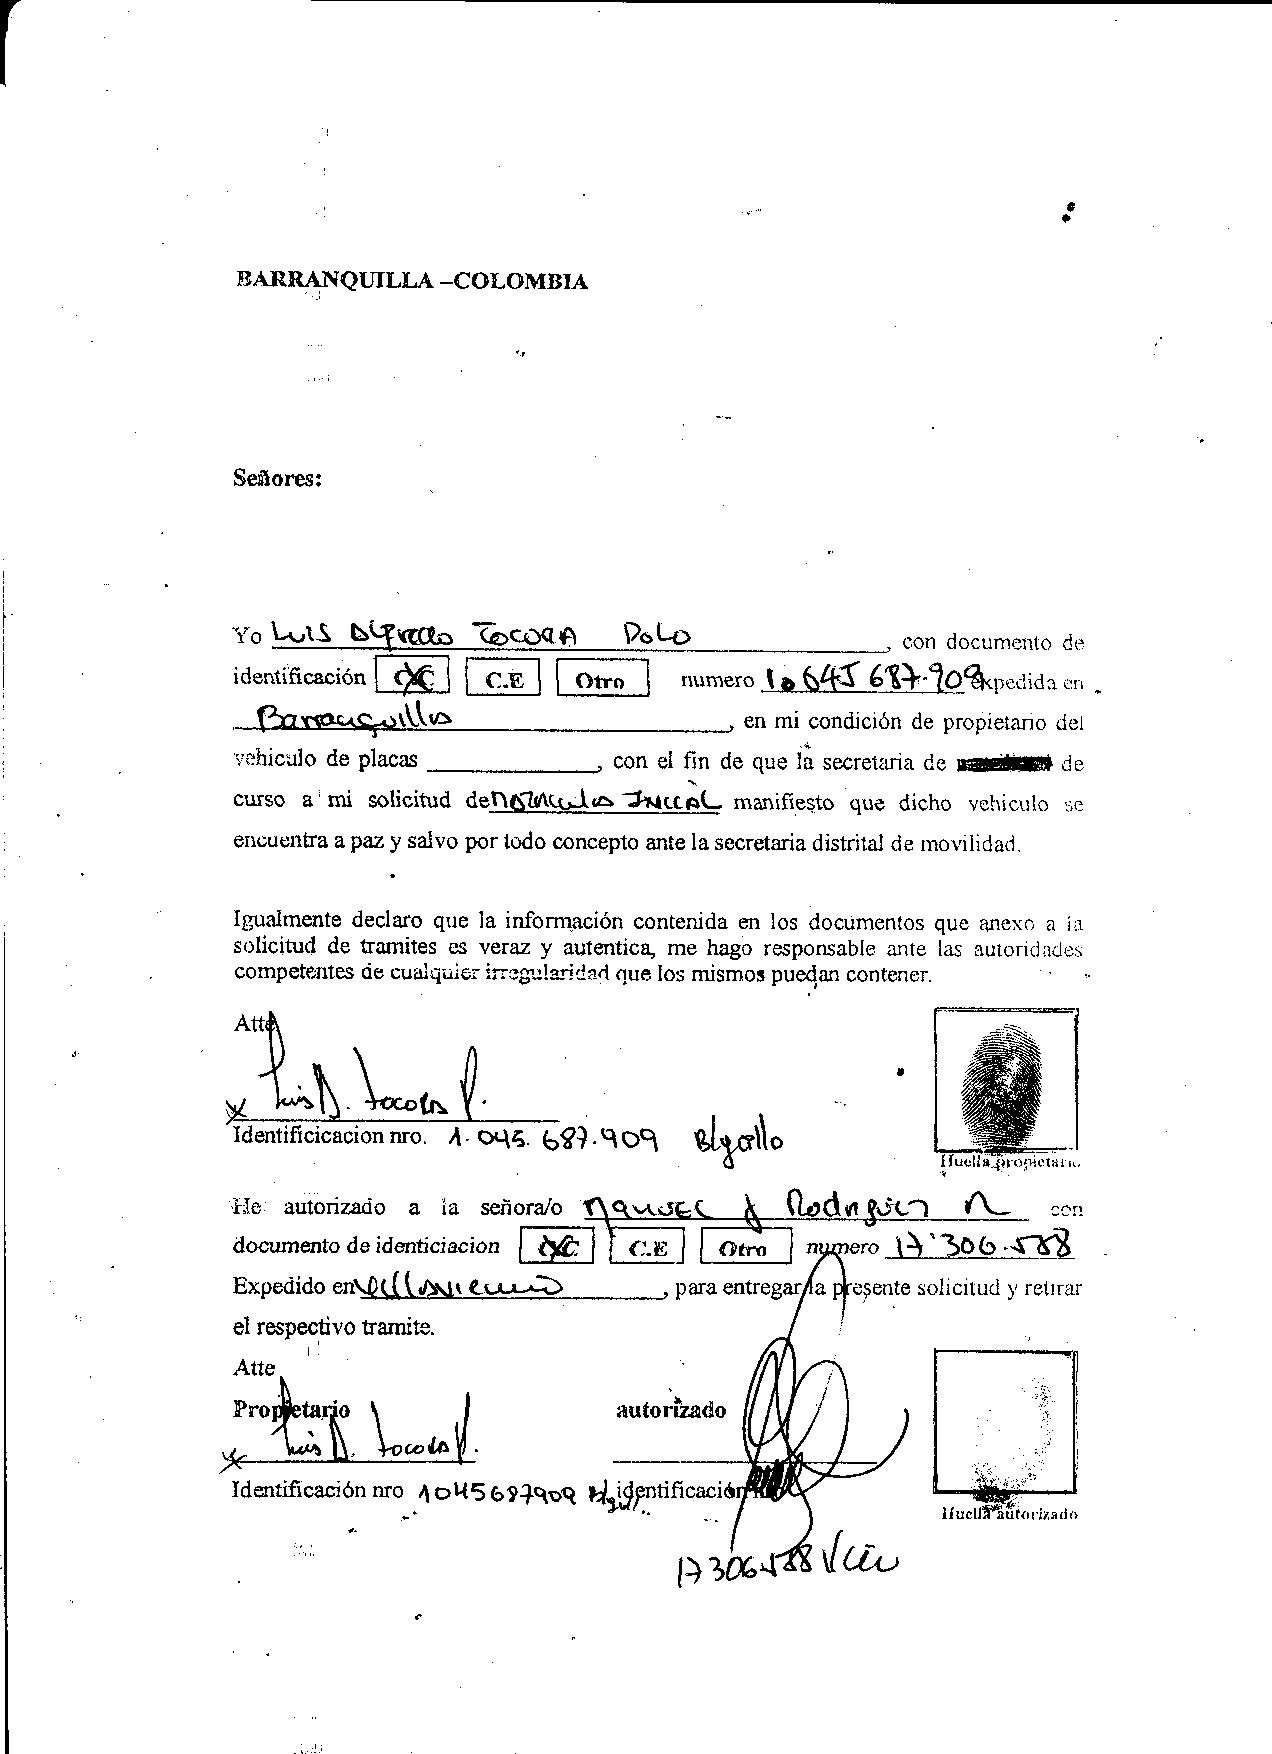 BARRANQUILLA –COLOMBIA
Señores:
Yo Luis Alfredo Tocora Polo, con documento de
identificación CC C.E Otro numero 1.045 687.909 expedida en
Barranquilla, en mi condición de propietario del
vehiculo de placas ____________, con el fin de que la secretaria de de
curso a mi solicitud de Matricula Inicial manifiesto que dicho vehiculo se
encuentra a paz y salvo por todo concepto ante la secretaria distrital de movilidad.
Igualmente declaro que la información contenida en los documentos que anexo a la
solicitud de tramites es veraz y autentica, me hago responsable ante las autoridades
competentes de cualquier irregularidad que los mismos puedan contener.
Atte
Luis A. Tocora P.
Identificicacion nro. 1.045.687.909 B/quilla
Huella propietario
He autorizado a la señora/o Manuel A Rodriguez R con
documento de identiciacion CC C.E Otro numero 17'306.588
Expedido en Villavicencio, para entregar la presente solicitud y retirar
el respectivo tramite.
Atte
Propietario autorizado
Luis A. Tocora P.
Identificación nro 1045687909 identificación
Huella autorizado
17306588 V/cio